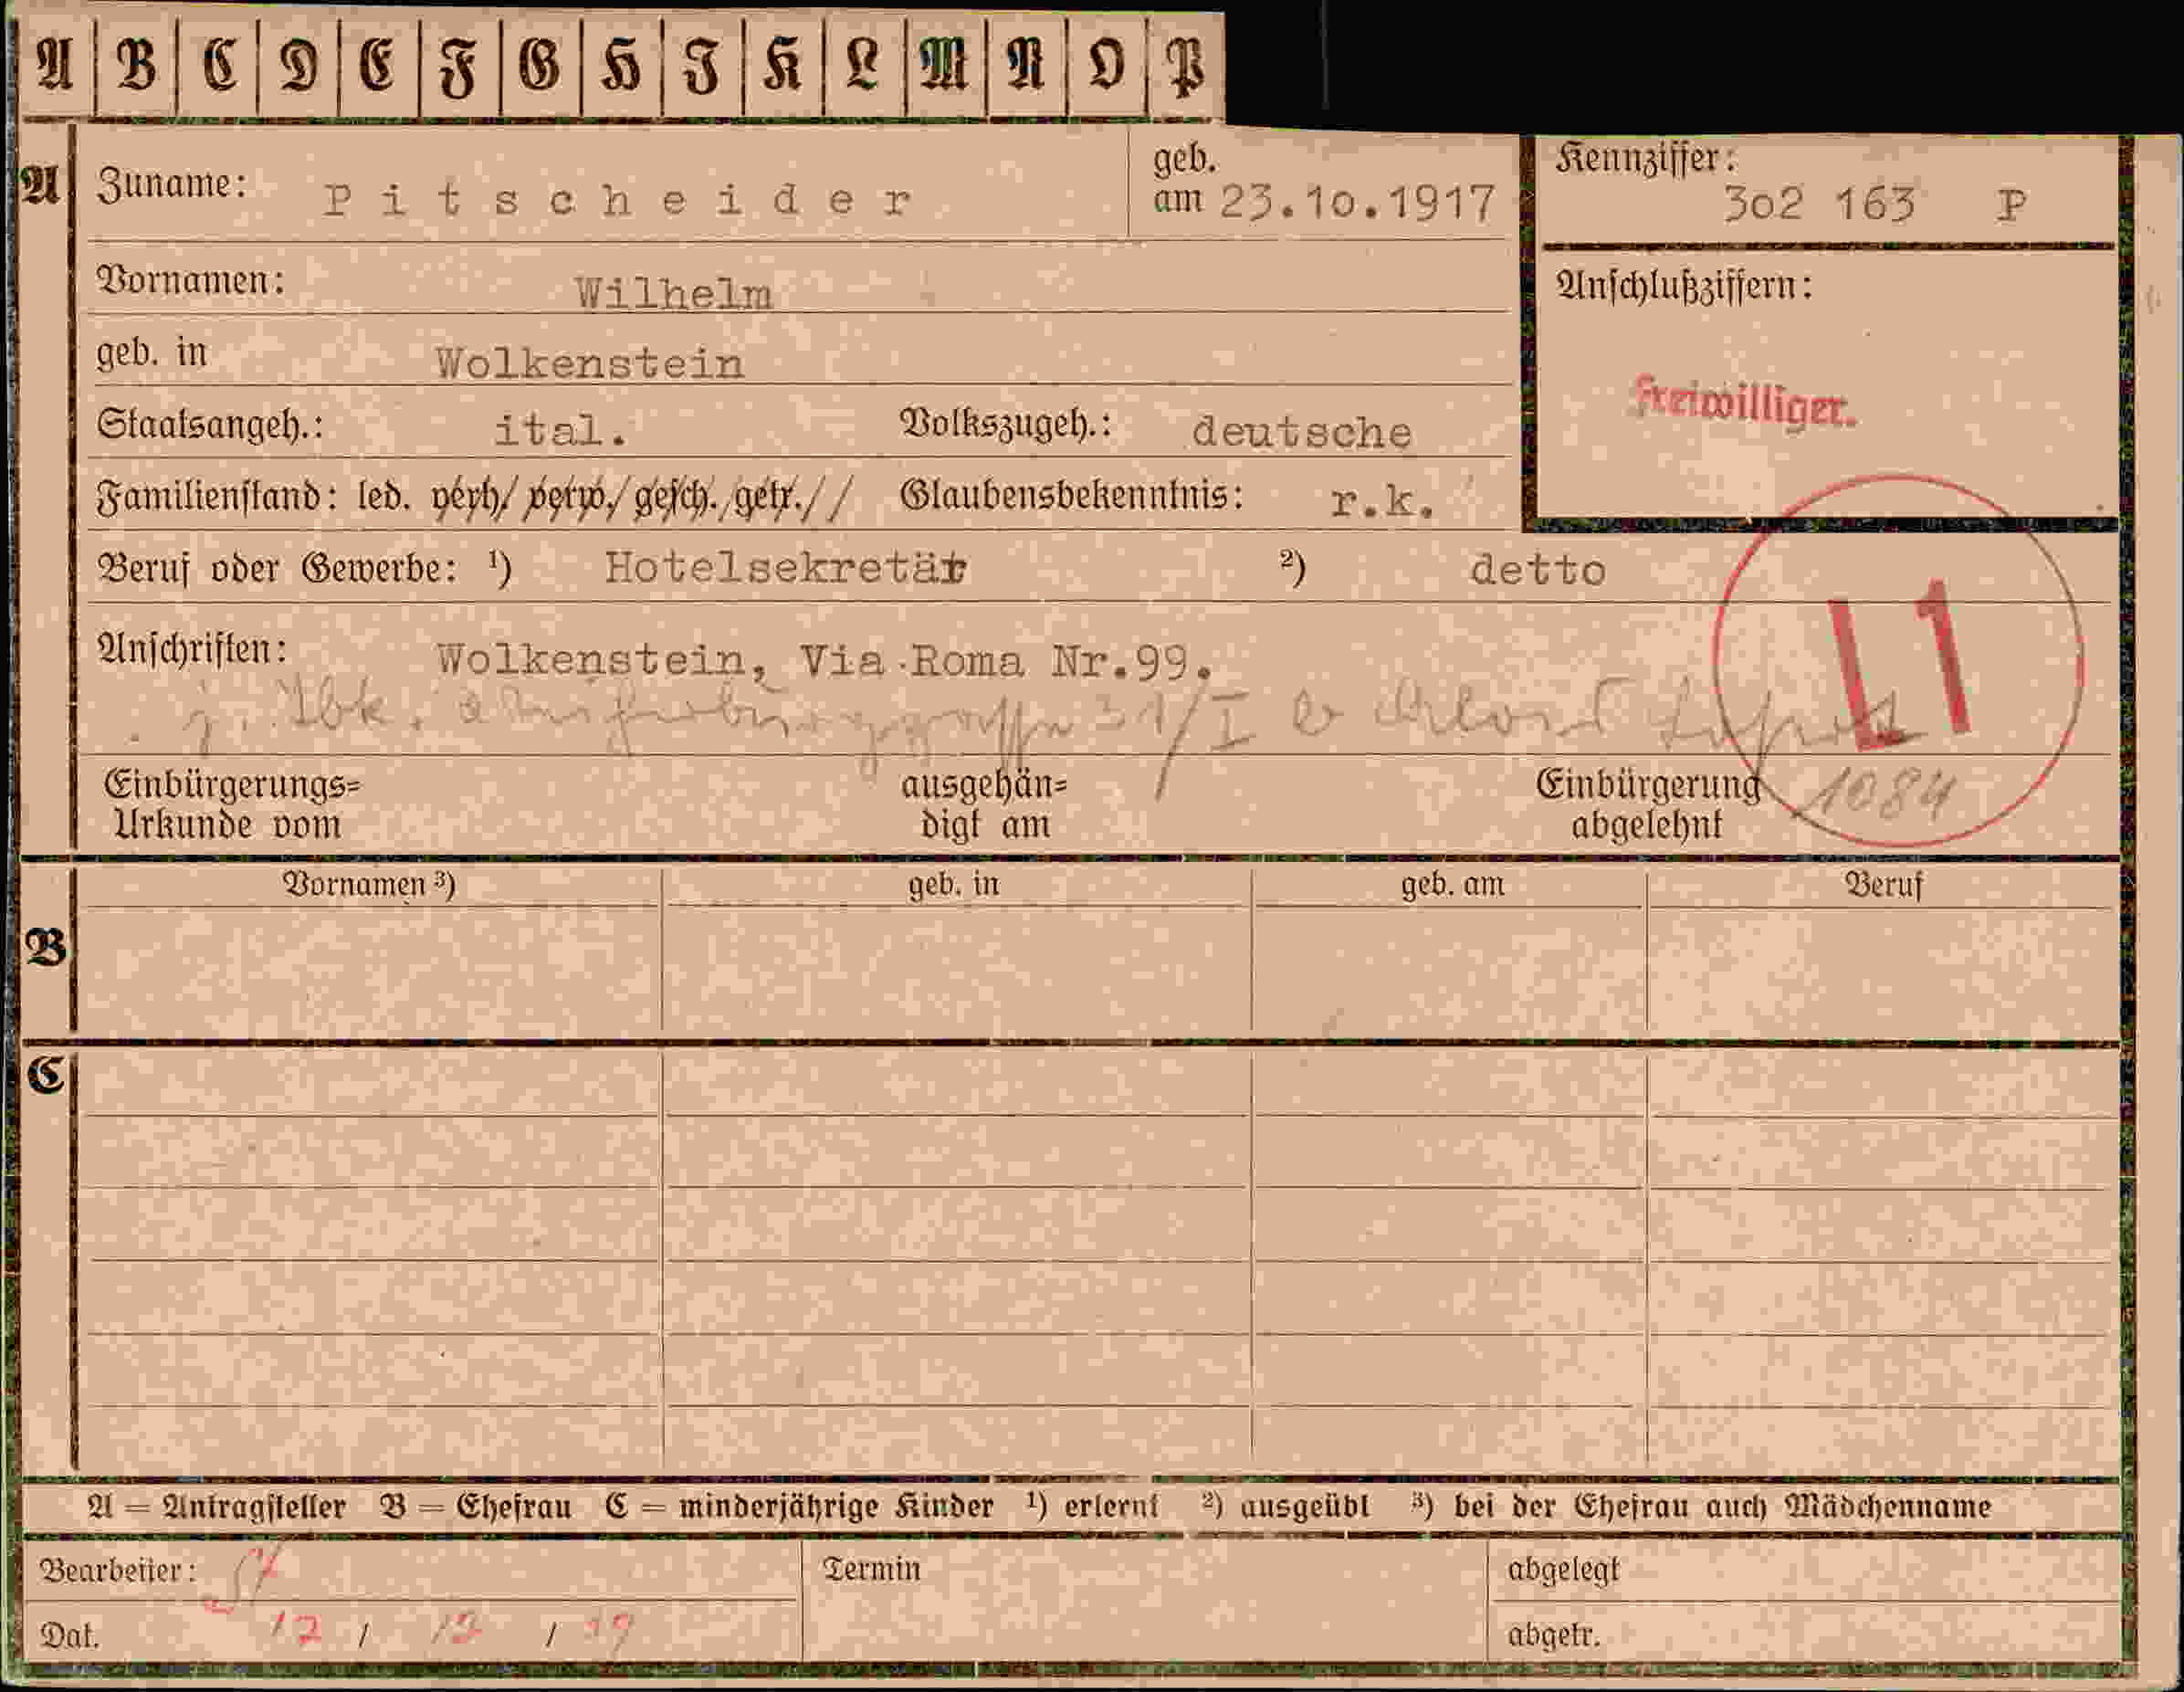 A B C D E F G H I K L M N O P
A Zuname: Pitscheider geb. am 23.10.1917 Kennziffer: 302 163 P
Vornamen: Wilhelm Anschlußziffern:
geb. in Wolkenstein
Freiwilliger.
Staatsangeh.: ital. Volkszugeh.: deutsche
Familienstand: led. verh./ verw./ gesch./ getr.// Glaubensbekenntnis: r.k.
Beruf oder Gewerbe: ¹) Hotelsekretär ²) detto
L1
Anschriften: Wolkenstein, Via Roma Nr.99.
j. Ibk. 31/I b
Einbürgerungs= ausgehän= Einbürgerung 1084
Urkunde vom digt am abgelehnt
Vornamen ³) geb. in geb. am Beruf
B
C
A = Antragsteller B = Ehefrau C = minderjährige Kinder ¹) erlernt ²) ausgeübt ³) bei der Ehefrau auch Mädchenname
Bearbeiter: Termin abgelegt
Dat. 12 / / abgetr.